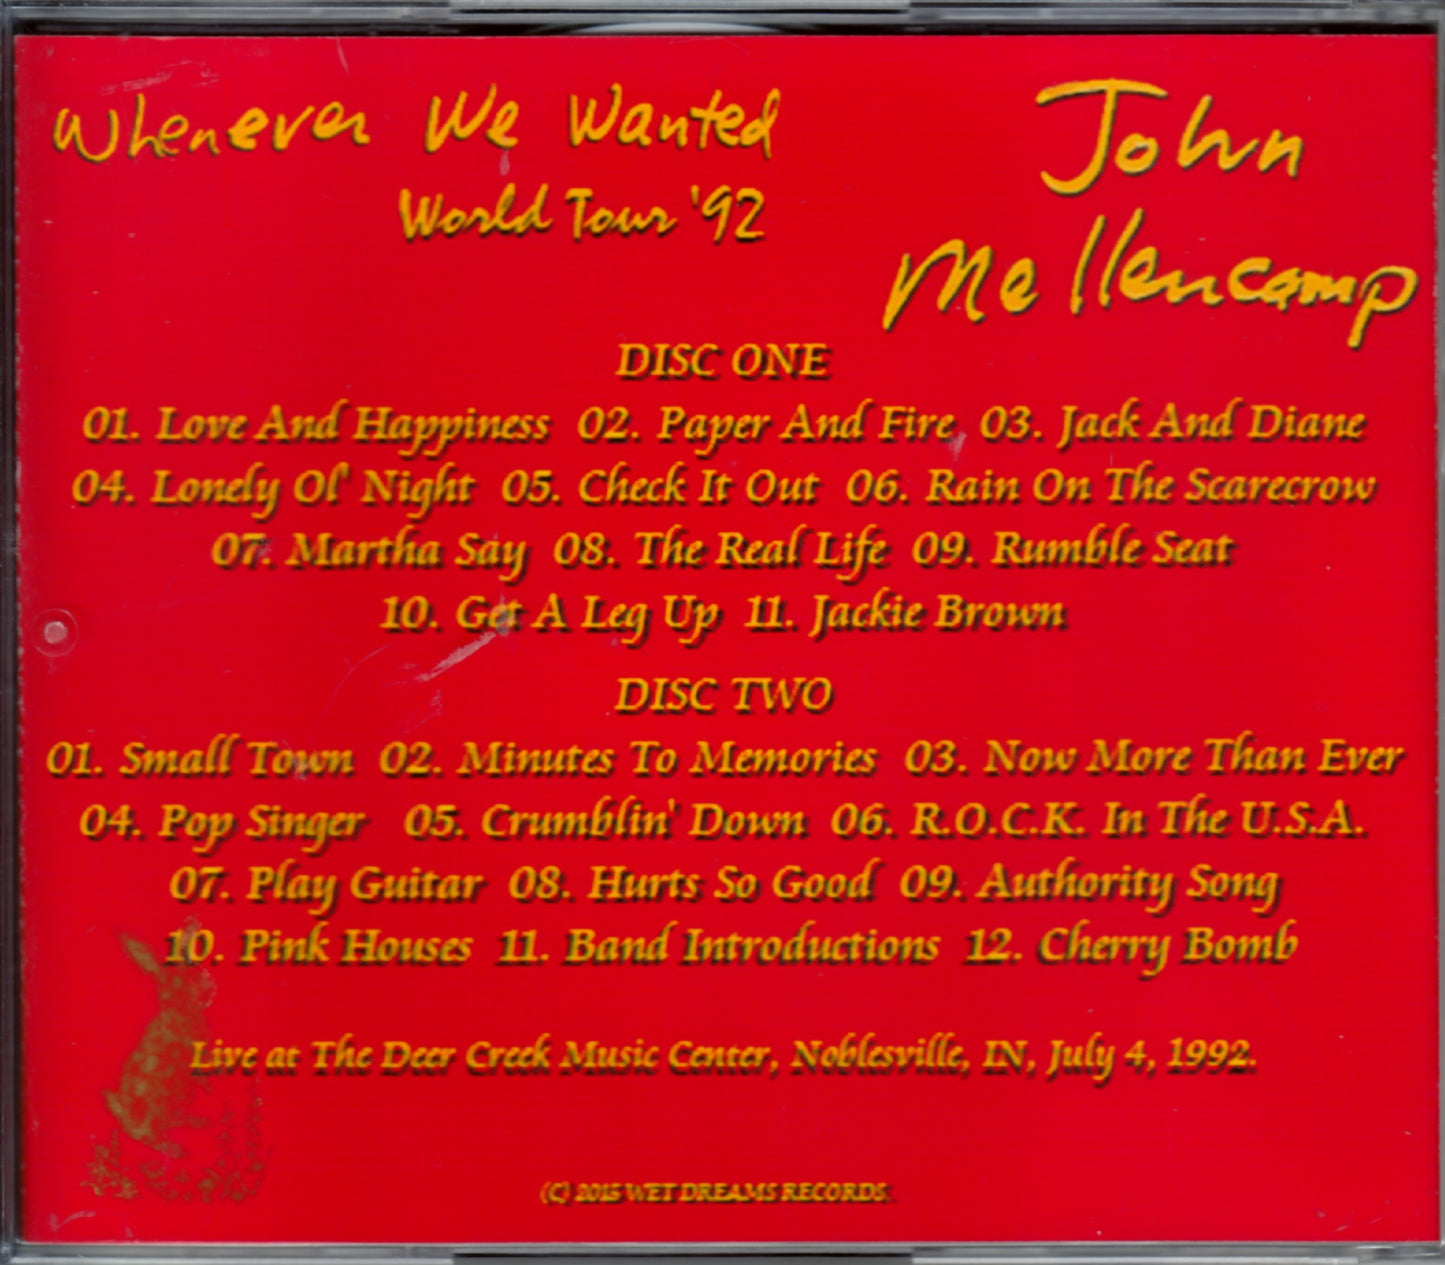 Whenever We Wanted
World Tour '92
John
Mellencamp
DISC ONE
01. Love And Happiness 02. Paper And Fire 03. Jack And Diane
04. Lonely Ol' Night 05. Check It Out 06. Rain On The Scarecrow
07. Martha Say 08. The Real Life 09. Rumble Seat
10. Get A Leg Up 11. Jackie Brown
DISC TWO
01. Small Town 02. Minutes To Memories 03. Now More Than Ever
04. Pop Singer 05. Crumblin' Down 06. R.O.C.K. In The U.S.A.
07. Play Guitar 08. Hurts So Good 09. Authority Song
10. Pink Houses 11. Band Introductions 12. Cherry Bomb
Live at The Deer Creek Music Center, Noblesville, IN, July 4, 1992.
(C) 2015 WET DREAMS RECORDS.